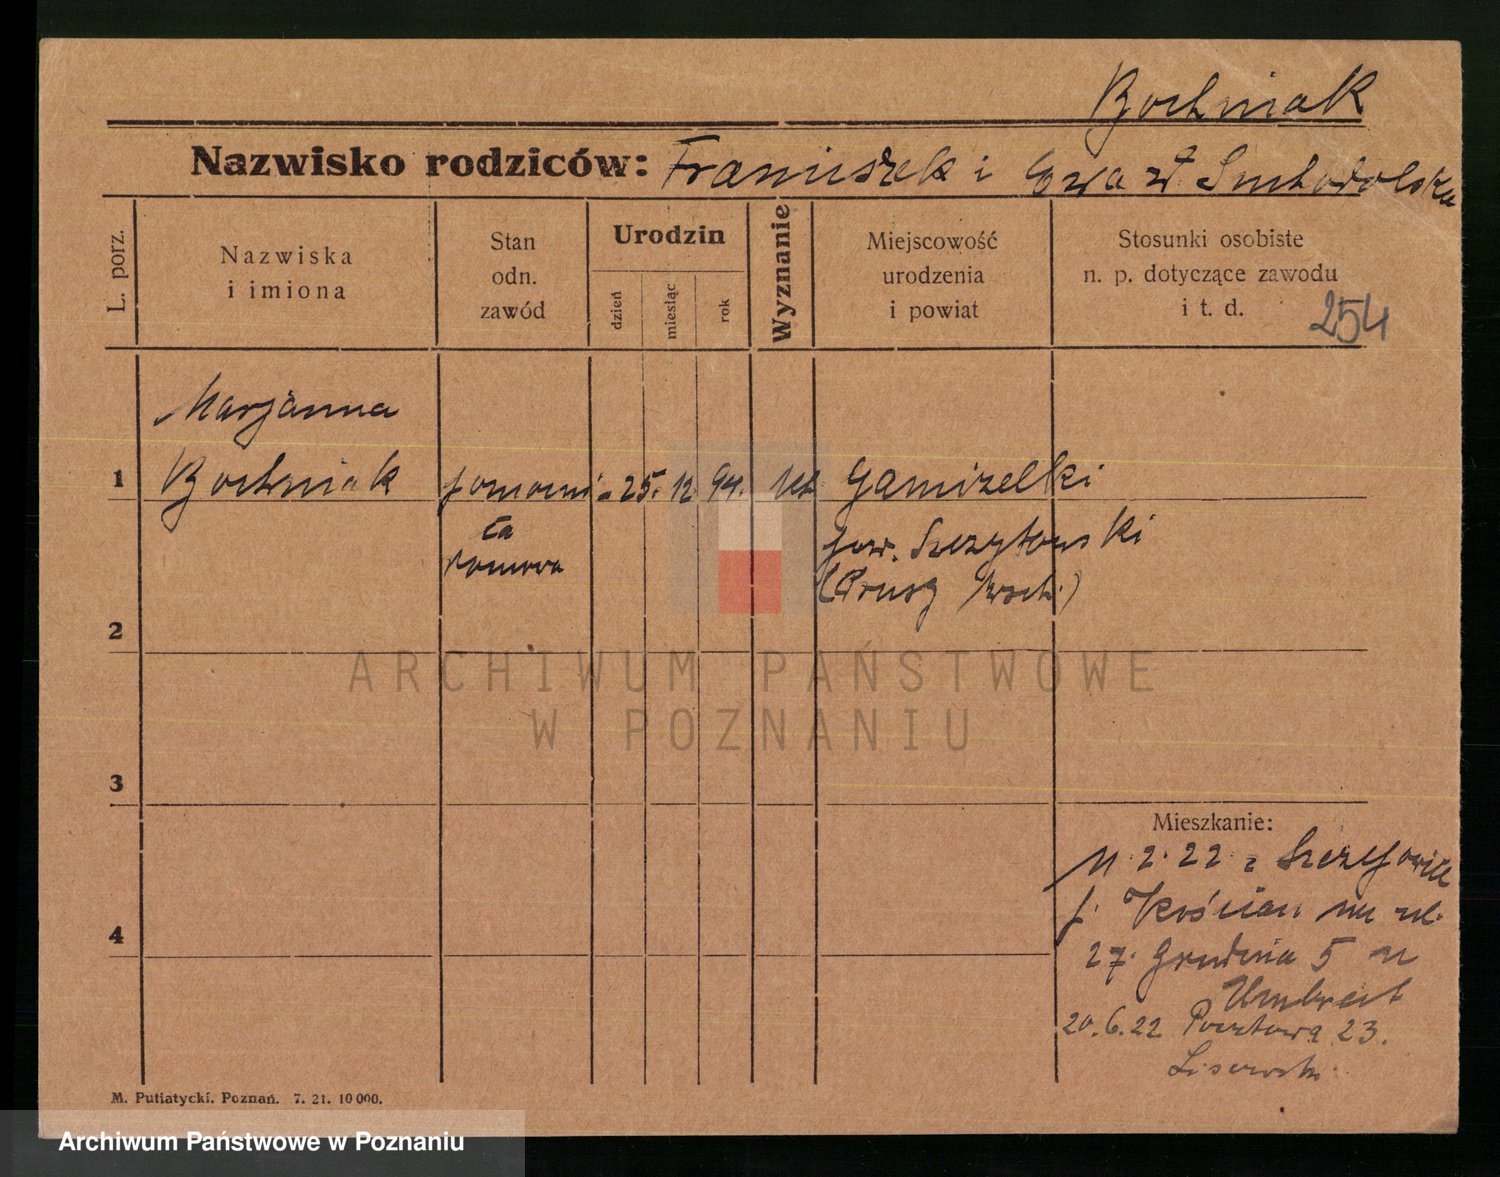 Bochniak
Nazwisko rodziców: Franciszek i Ewa zd Suchodolska
L. porz.
Nazwiska
i imiona
Stan
odn.
zawód
Urodzin
dzień
miesiąc
rok
Wyznanie
Miejscowość
urodzenia
i powiat
Stosunki osobiste
n. p. dotyczące zawodu
i t. d.
254
Marjanna
1 Bochniak pomocni- 25. 12 94. kat. Gamizelki
ca
domowa
pow. Szczytowski
(Prusy Wsch.)
2
3
4
Mieszkanie:
11.2.22 z
p. Kościan ul.
27. Grudnia 5 u
Umbreit
20.6.22 Pocztowa 23.
M. Putiatycki. Poznań. 7. 21. 10 000.
ARCHIWUM PAŃSTWOWE
W POZNANIU
Archiwum Państwowe w Poznaniu